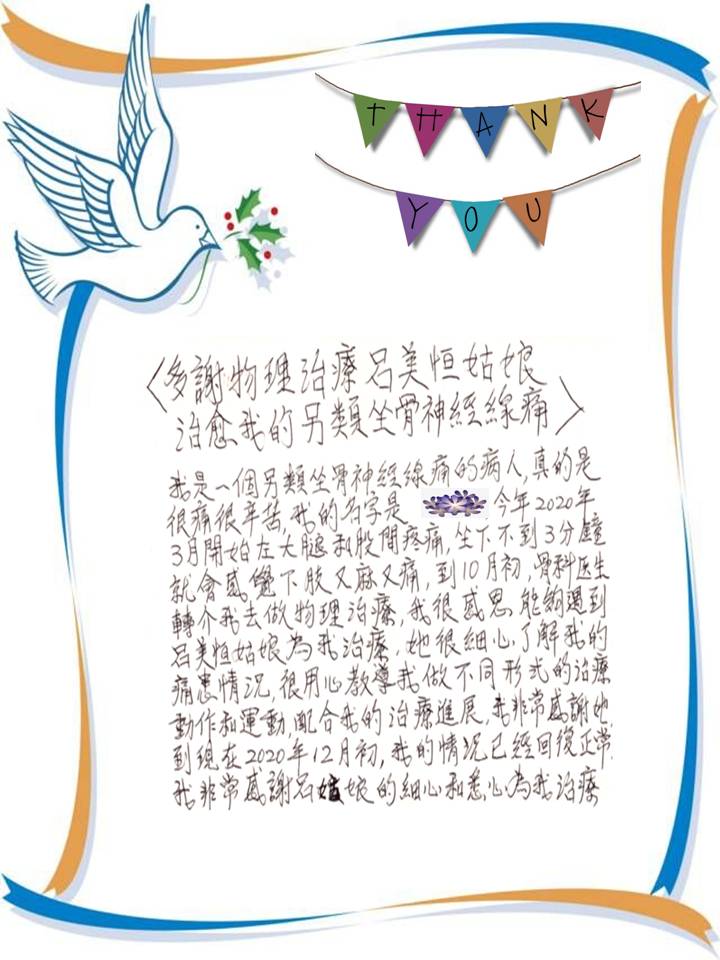 THANK
YOU
<多謝物理治療呂美恒姑娘
治愈我的另類坐骨神經線痛>
我是一個另類坐骨神經線痛的病人,真的是
很痛很辛苦,我的名字是 今年2020年
3月開始左大腿和股間疼痛,坐下不到3分鐘
就會感覺下肢又麻又痛,到10月初,骨科医生
轉介我去做物理治療,我很感恩能夠遇到
呂美恒姑娘為我治療,她很細心了解我的
痛患情況,很用心教導我做不同形式的治療
動作和運動,配合我的治療進展,我非常感謝她,
到現在2020年12月初,我的情況已經回復正常.
我非常感謝呂姑娘的細心和悉心為我治療